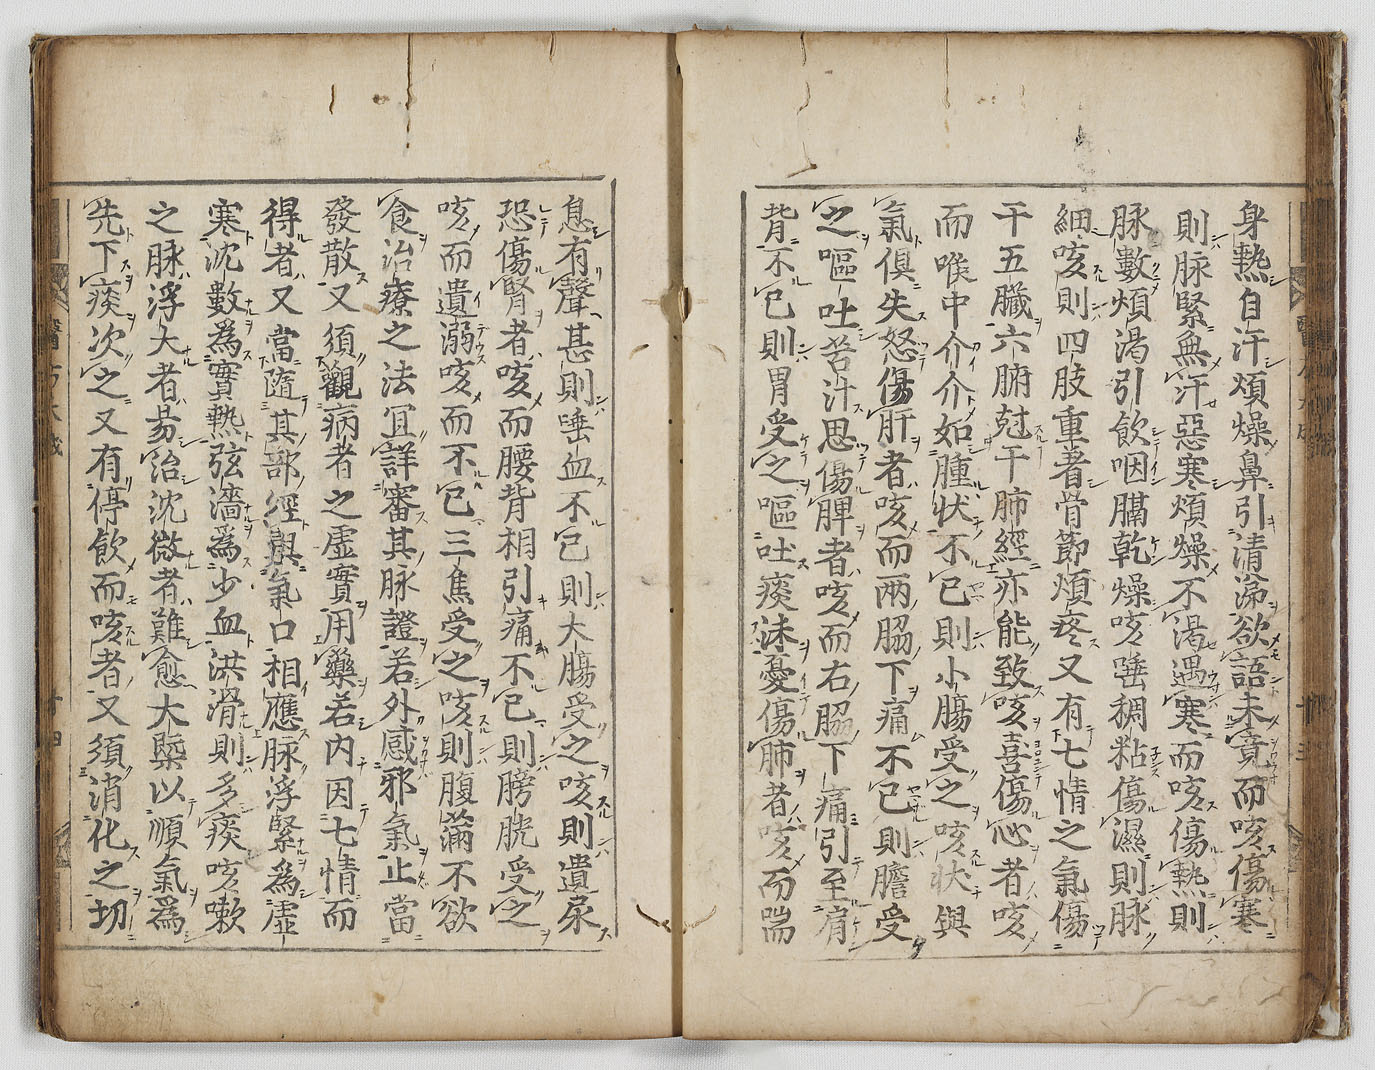 身熱自汗煩燥鼻引清涕欲語未竟而咳傷寒
則脉緊無汗惡寒煩燥不渇遇寒而咳傷熱則
脉數煩渇引飲咽膈乾燥咳唾稠粘傷濕則脉
細咳則四肢重著骨節煩疼又有七情之氣傷
干五臓六腑尅干肺經亦能致咳喜傷心者咳
而喉中介介如腫状不已則小膓受之咳状與
氣俱失怒傷肝者咳而两脇下痛不已則膽受
之嘔吐苦汁思傷脾者咳而右脇下痛引至肩
背不已則胃受之嘔吐痰沫憂傷肺者咳而喘
息有聲甚則唾血不已則大膓受之咳則遺尿
恐傷腎者咳而腰背相引痛不已則膀胱受之
咳而遺溺咳而不已三焦受之咳則腹滿不欲
食治療之法宜詳審其脈證若外感邪氣止當
發散又須觀病者之虚實用藥若内因七情而
得者又當隨其部經與氣口相應脉浮緊爲虚
寒沈數爲實熱弦濇爲少血洪滑則多痰咳嗽
之脉浮大者易治沈微者難愈大槩以順氣爲
先下痰次之又有停飲而咳者又須消化之切